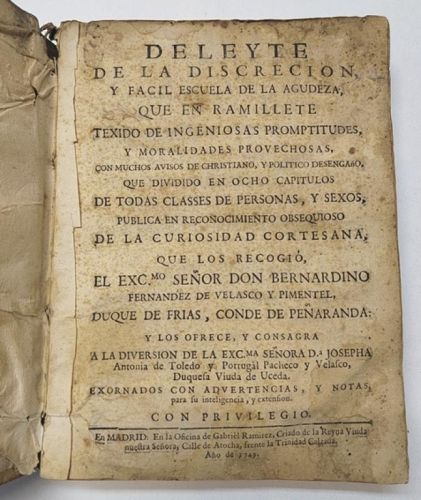 DELEYTE
DE LA DISCRECION,
Y FACIL ESCUELA DE LA AGUDEZA,
QUE EN RAMILLETE
TEXIDO DE INGENIOSAS PROMPTITUDES,
Y MORALIDADES PROVECHOSAS,
CON MUCHOS AVISOS DE CHRISTIANO, Y POLITICO DESENGAÑO,
QUE DIVIDIDO EN OCHO CAPITULOS
DE TODAS CLASSES DE PERSONAS, Y SEXOS,
PUBLICA EN RECONOCIMIENTO OBSEQUIOSO
DE LA CURIOSIDAD CORTESANA,
QUE LOS RECOGIÓ,
EL EXC.MO SEÑOR DON BERNARDINO
FERNANDEZ DE VELASCO Y PIMENTEL,
DUQUE DE FRIAS, CONDE DE PEÑARANDA:
Y LOS OFRECE, Y CONSAGRA
A LA DIVERSION DE LA EXC.MA SEÑORA D.ª JOSEPHA
Antonia de Toledo y Portugàl Pacheco y Velasco,
Duquesa Viuda de Uceda.
EXORNADOS CON ADVERTENCIAS, Y NOTAS,
para su inteligencia, y extension.
CON PRIVILEGIO.
En MADRID: En la Oficina de Gabriel Ramirez, Criado de la Reyna Viuda
nuestra Señora, Calle de Atocha, frente la Trinidad Calzada.
Año de 1749.